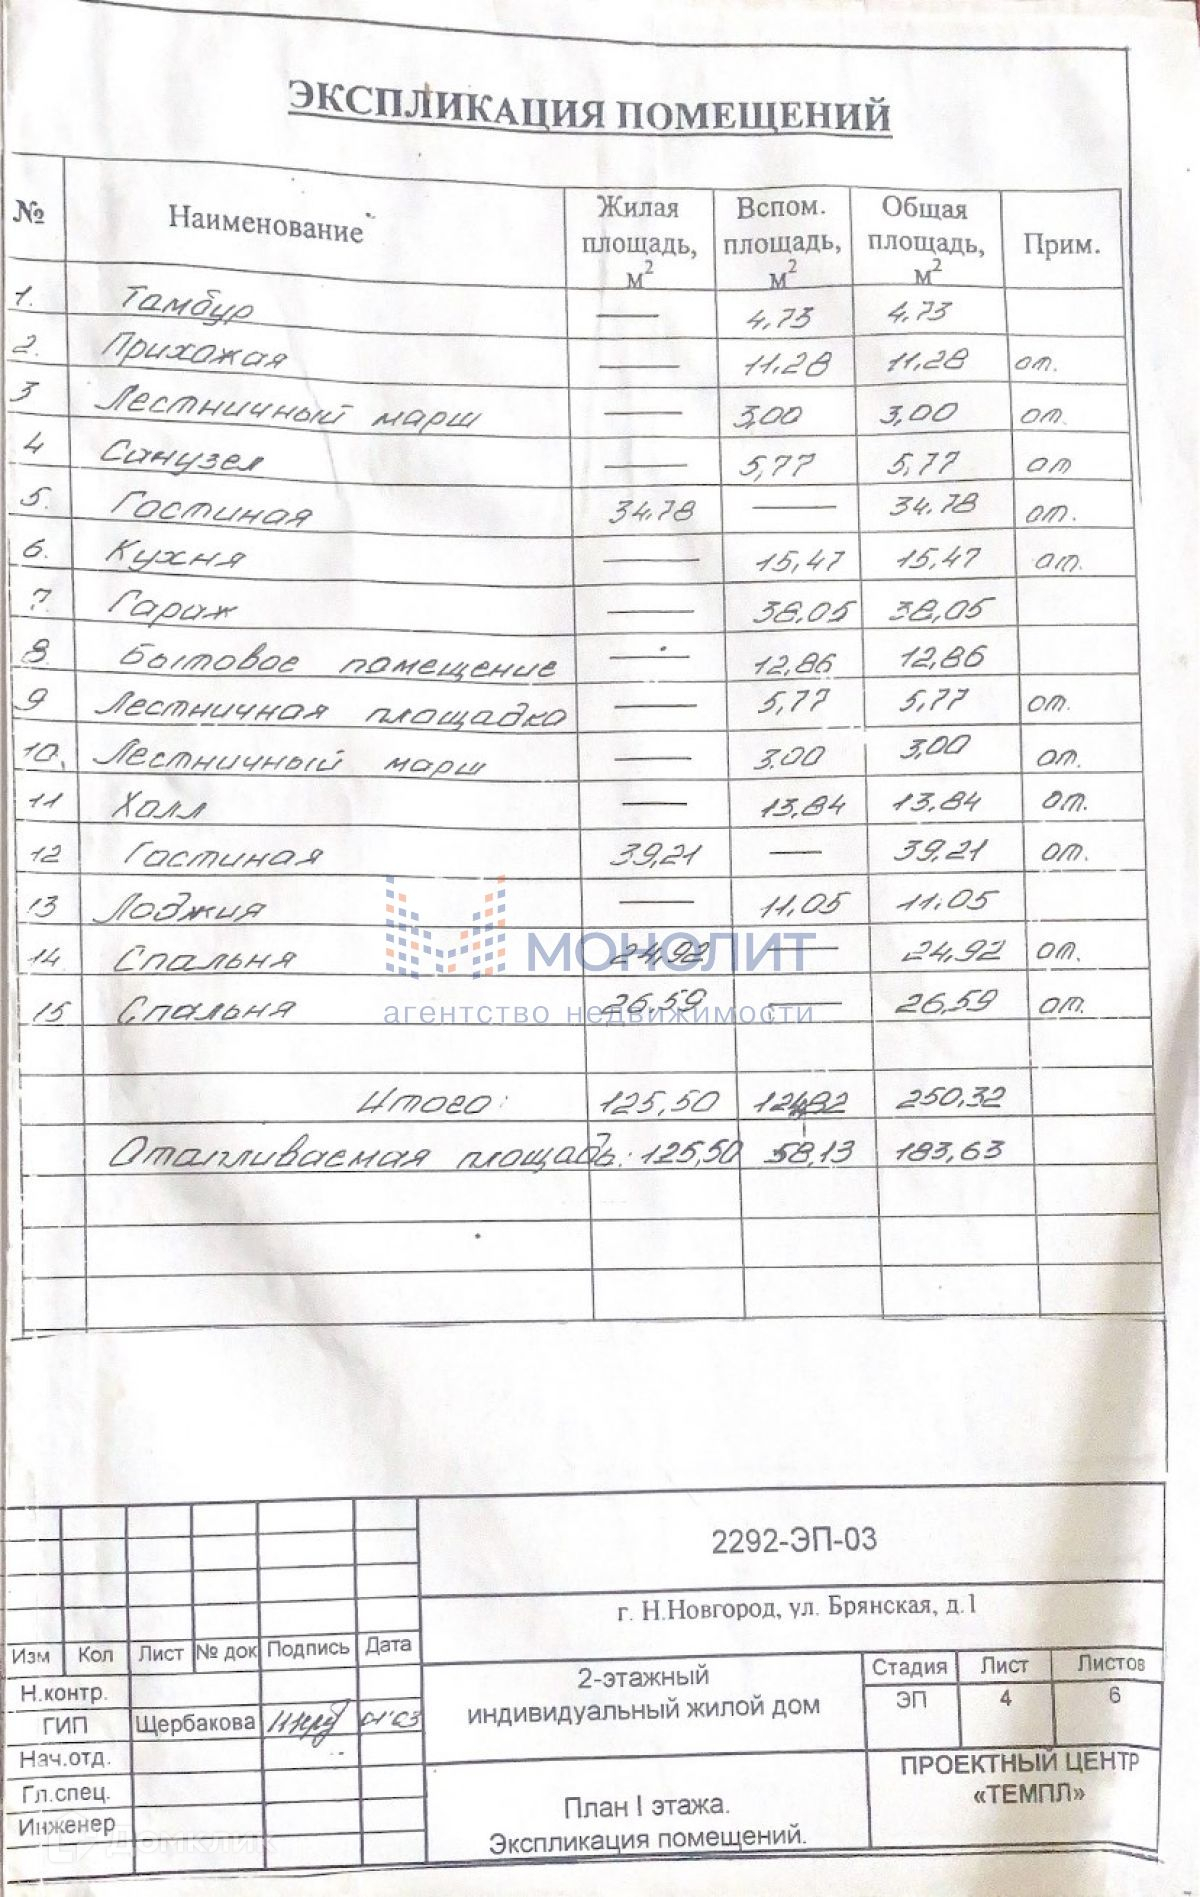 ЭКСПЛИКАЦИЯ ПОМЕЩЕНИЙ
№ Наименование Жилая площадь, м2 Вспом. площадь, м2 Общая площадь, м2 Прим.
1. Тамбур — 4,73 4,73
2. Прихожая — 11.28 11,28 от.
3 Лестничный марш — 3,00 3,00 от.
4 Санузел — 5,77 5,77 от
5. Гостиная 34,78 — 34,78 от.
6. Кухня — 15,47 15,47 от.
7. Гараж — 38,05 38,05
8 Бытовое помещение — 12,86 12,86
9 Лестничная площадка — 5,77 5,77 от.
10. Лестничный марш — 3,00 3,00 от.
11 Холл — 13,84 13,84 от.
12 Гостиная 39,21 — 39,21 от.
13 Лоджия — 11,05 11,05
14 Спальня 24,92 — 24,92 от.
15 Спальня 26,59 — 26,59 от.
МОНОЛИТ
агентство недвижимости
Итого: 125,50 124,82 250,32
Отапливаемая площадь: 125,50 58,13 183,63
2292-ЭП-03
г. Н.Новгород, ул. Брянская, д.1
Изм Кол Лист № док Подпись Дата
2-этажный
индивидуальный жилой дом
Стадия Лист Листов
ЭП 4 6
Н.контр.
ГИП Щербакова
Нач.отд.
Гл.спец.
Инженер
План I этажа.
Экспликация помещений.
ПРОЕКТНЫЙ ЦЕНТР
«ТЕМПЛ»
ДОМКЛИК